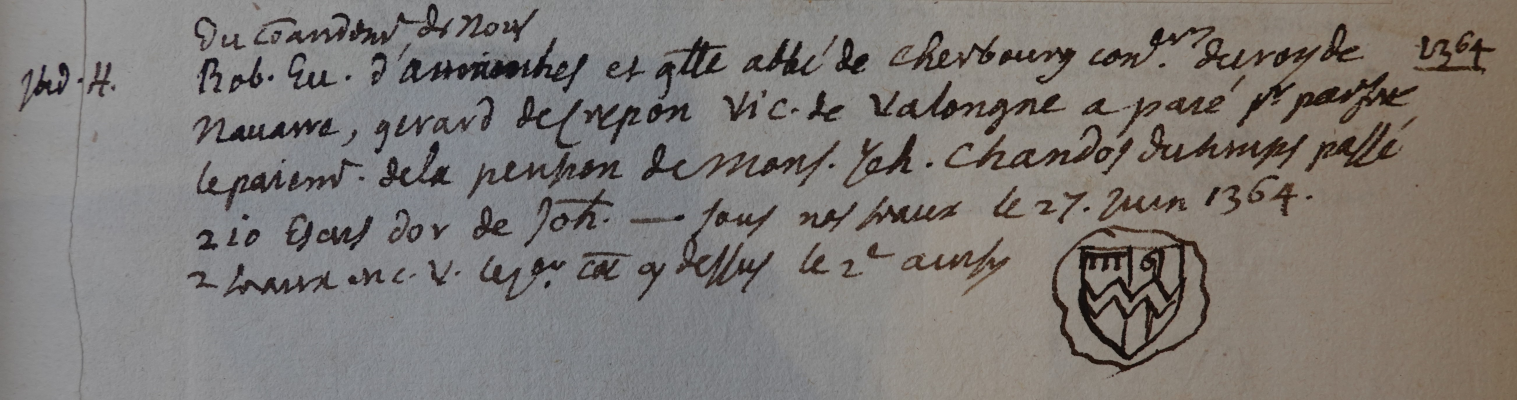 Du com̄andemt de Nous
Rob. Ev. d'Avrenches et gtte abbé de Cherbourg conders. du roy de 1364
Ibid. H. Navarre, gerard de Crepon Vic. de Valongne a paié pr parfaire
le paiemt. de la pension de Mons. Jeh. Chandos du temps passé
210 Escus d'or de Joh. — sous nos sceaux le 27. Juin 1364.
2 sceaux en c. v. le per. cōe cy dessus le 2e ainsy